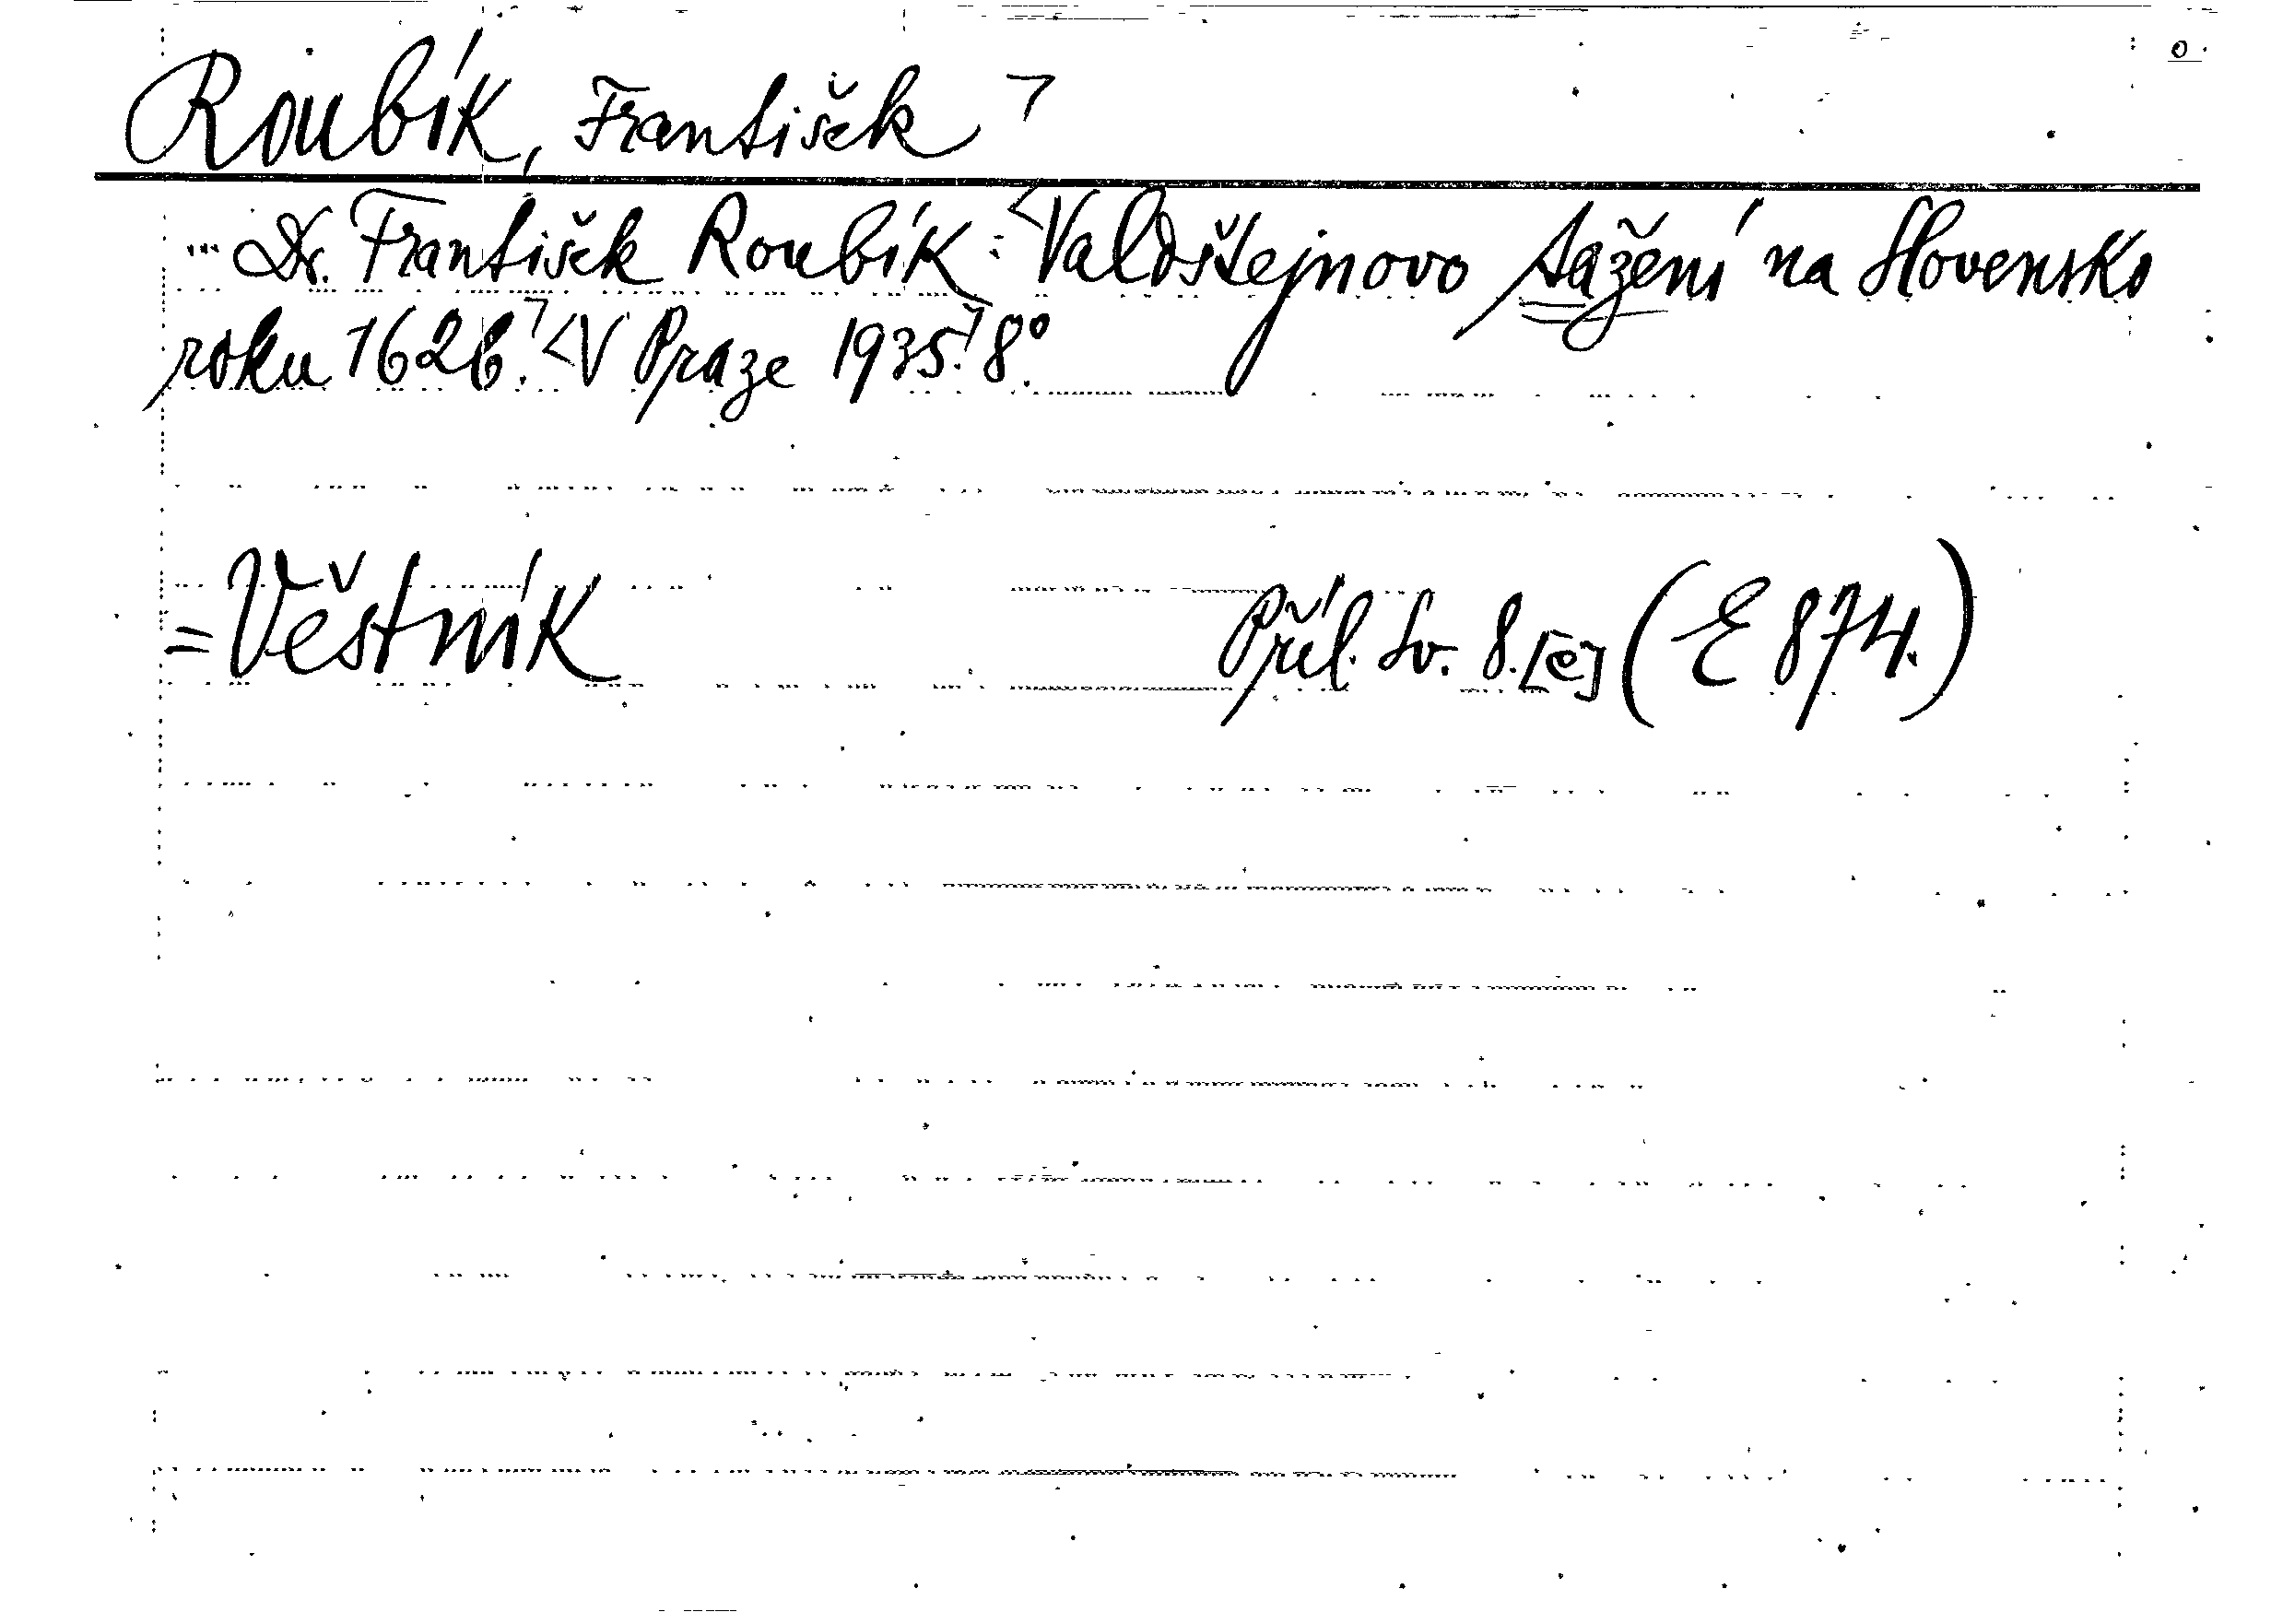 o.
Roubík, František ㄱ
... Dr. František Roubík: <Valdštejnovo tažení na Slovensko
roku 1626.ㄱ <V Praze 1935.ㄱ 8°.
= Věstník Příl. Sv. 8.[e] (E 874.)